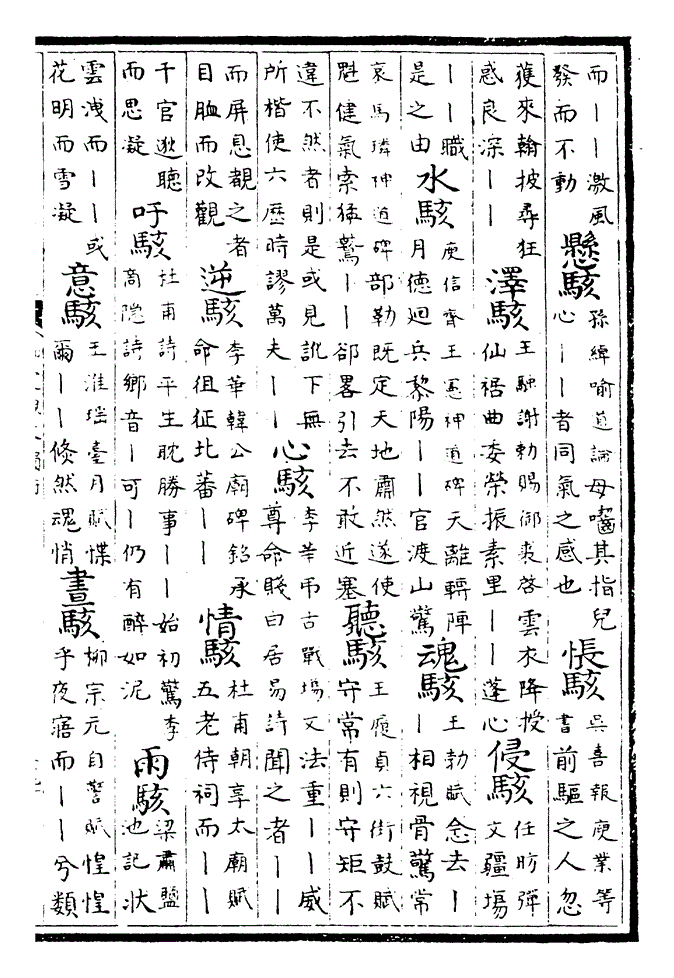 而丨丨激風發而不動懸駭孫綽喻道論母嚙其指兒心丨丨者同氣之感也悵駭吳喜報庾業等書前驅之人忽
獲來翰披尋狂惑良深丨丨澤駭王融謝勅賜御裘啓雲衣降授仙裾曲委榮振素里丨丨蓬心侵駭任昉彈文疆埸
丨丨職是之由水駭庾信齊王憲神道碑天離轉陣月德迴兵黎陽丨丨官渡山驚魂駭王勃賦念去丨丨相視骨驚常
哀馬璘神道碑部勒既定天地肅然遂使魁健氣索猛驁丨丨郤畧引去不敢近塞聽駭王履貞六街鼓賦守常有則守矩不
違不然者則是或見訛下無所楷使六歷時謬萬夫丨丨心駭李華弔古戰場文法重丨丨威尊命賤白居易詩聞之者丨丨
而屏息覩之者目䀏而改觀逆駭李華韓公廟碑銘承命徂征北蕃丨丨情駭杜甫朝享太廟賦五老侍祠而丨丨
千官逖聽而思凝吁駭杜甫詩平生耽勝事丨丨始初驚李商隱詩鄉音丨可丨仍有醉如泥雨駭梁肅鹽池記狀
雲洩而丨丨或花明而雪凝意駭王淮瑤臺月賦惵爾丨丨倏然魂悄晝駭柳宗元自警賦惶惶乎夜寤而丨丨兮類